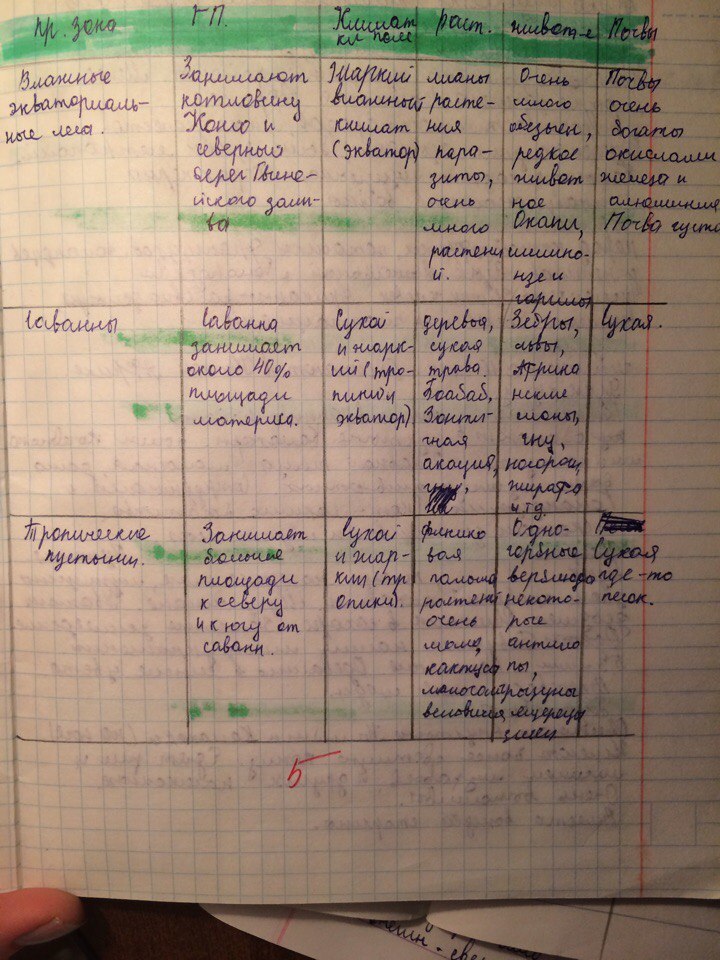 пр. зона
Г.П.
Климат
кл пояс
раст.
живот-е
Почвы
Влажные
экваториаль-
ные леса.
Занимают
котловину
Конго и
северный
берег Гвине-
йского зали-
ва
Жаркий
влажный
климат
(экватор)
лианы
расте-
ния
пара-
зиты,
очень
много
растени
й.
Очень
много
обезьян,
редкое
живот
ное
Окапи,
шимпа-
нзе и
гориллы
Почвы
очень
богаты
окислами
железа и
алюминия
Почва густа
Саванны
Саванна
занимает
около 40%
площади
материка.
Сухой
и жарк-
ий (тро-
пики и
экватор)
деревья,
сухая
трава.
Баобаб,
Зонти-
чная
акация,
Зебры,
львы,
Африка
нские
слоны,
гну,
носорог,
жираф
и т д
Сухая.
Тропические
пустыни.
Занимает
большие
площади
к северу
и к югу от
саванн.
Сухой
и жар-
кий (тр
опики).
финико
вая
пальма
растений
очень
мало,
кактусы
вельвичия
Одно-
горбные
верблюды
некото-
рые
антило
пы,
грызуны
ящерицы
змеи
Сухая
где-то
песок.
5